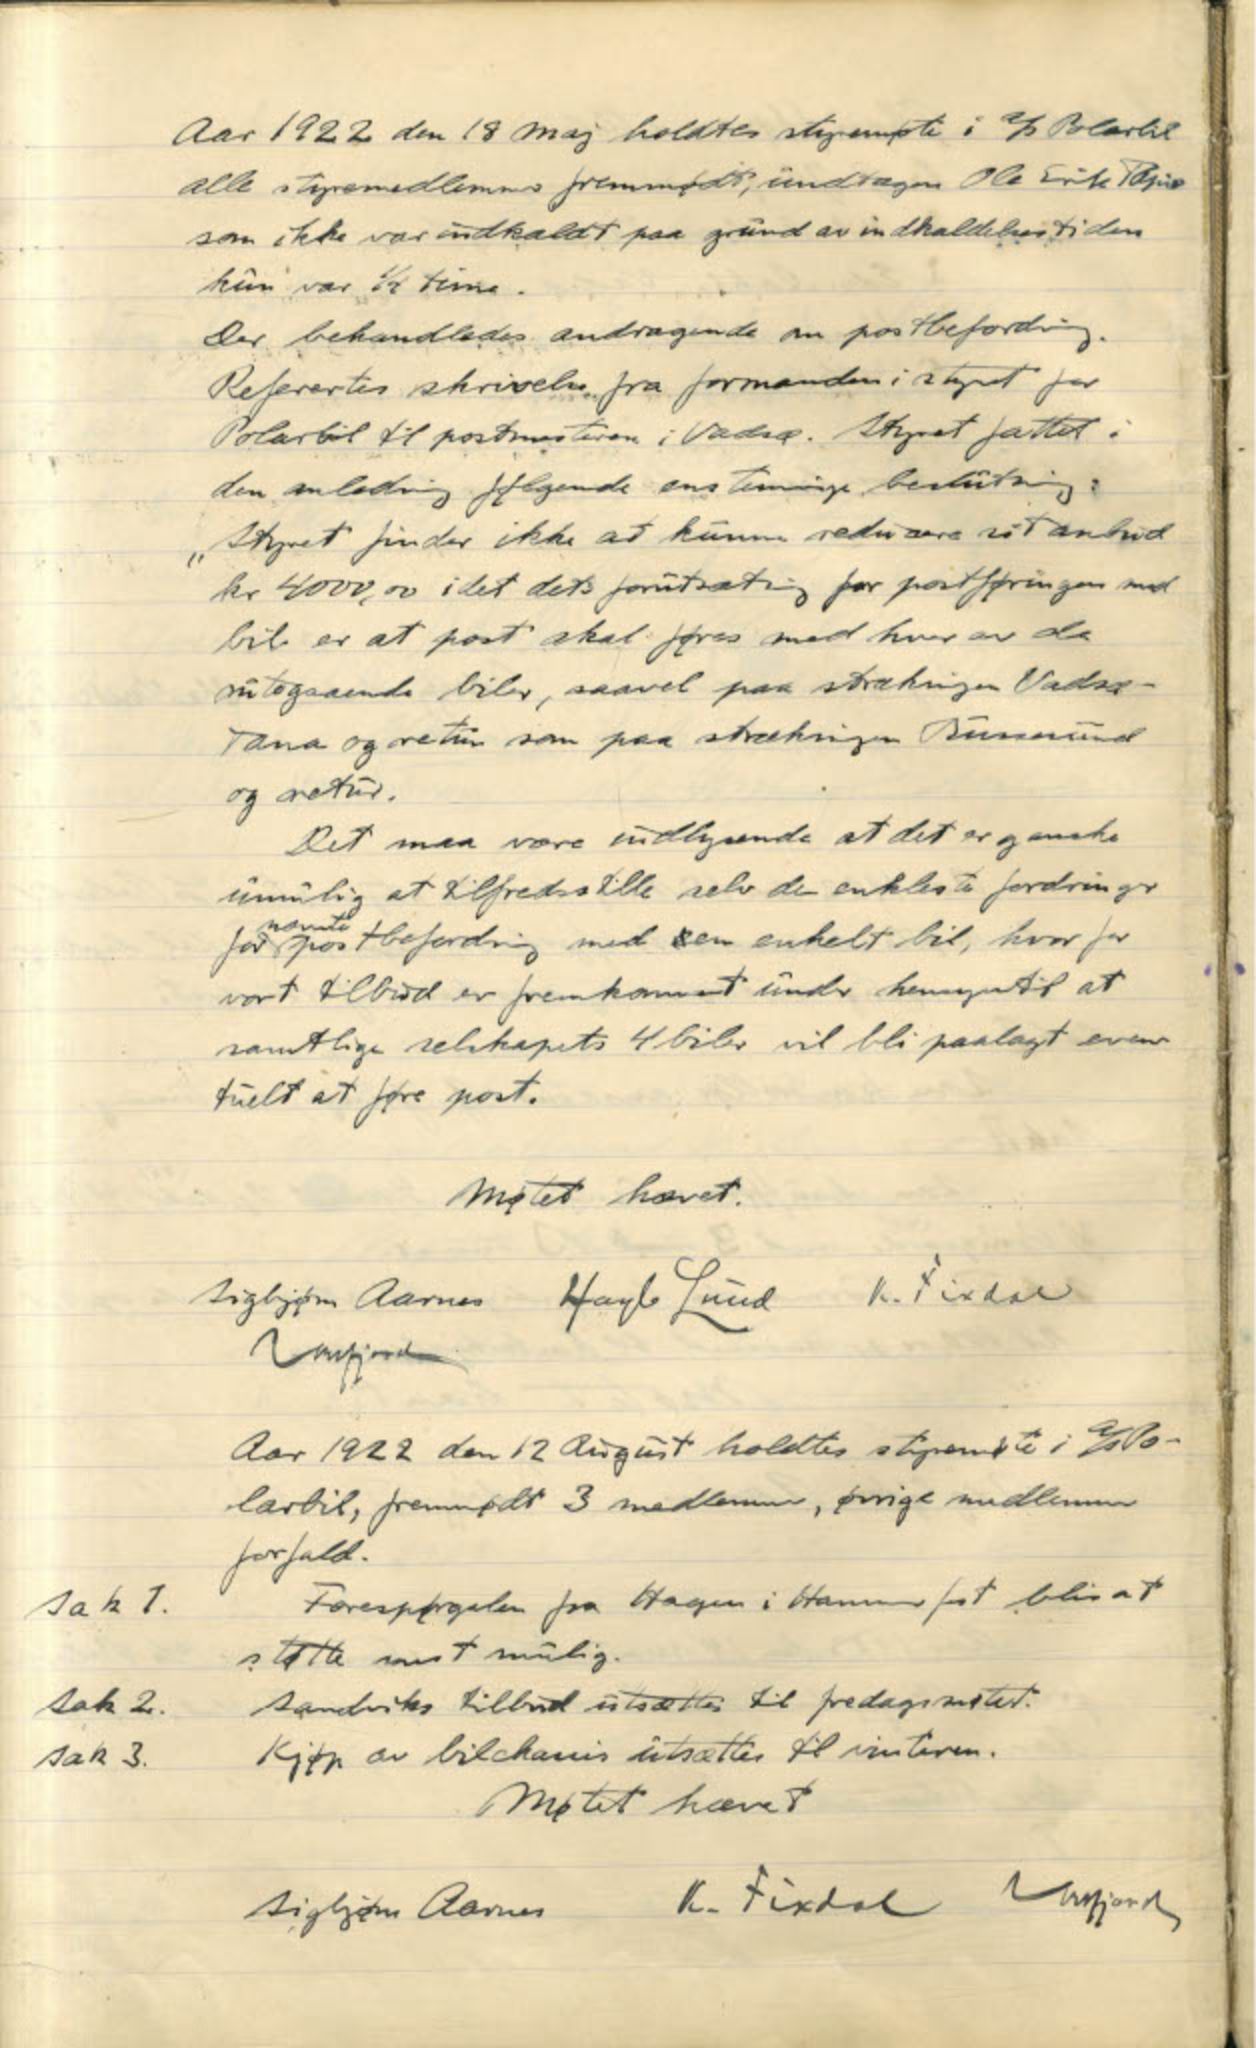 Aar 1922 den 18 Maj holdtes styremøte i A/S Polarbil
alle styremedlemmer fremmødt, undtagen Ole Erik
som ikke var indkaldt paa grund av indkaldelsestiden
kun var 1/2 time.
Der behandledes andragende om postbefordring.
Referertes skrivelse fra formanden i styret for
Polarbil til postmesteren i Vadsø. Styret fattet i
den anledning følgende enstemmige beslutning:
"Styret finder ikke at kunne reducere sit anbud
kr 4000,00 idet dets forutsætning for postføringen med
bil er at post skal føres med hver av de
rutegaaende biler, saavel paa strækningen Vadsø-
Tana og retur som paa strækningen Bussesund
og retur.
Det maa være indlysende at det er ganske
umulig at tilfredsstille selv de enkleste fordringer
for nævnte postbefordring med en enkelt bil, hvorfor
vort tilbud er fremkommet under hensyn til at
samtlige selskapets 4 biler vil bli paalagt even-
tuelt at føre post.
Møtet hævet.
Sigbjørn Aarnes Lund K. Fixdal
Aar 1922 den 12 August holdtes styremøte i A/S Po-
larbil, fremmødt 3 medlemmer, øvrige medlemmer
forfald.
Sak 1. Forespørgelen fra Hagen i Hammerfest blir at
støtte mest mulig.
Sak 2. Sandviks tilbud utsættes til fredagsmøtet.
Sak 3. Kjøp av bilchassis utsættes til vinteren.
Møtet hævet
Sigbjørn Aarnes K. Fixdal